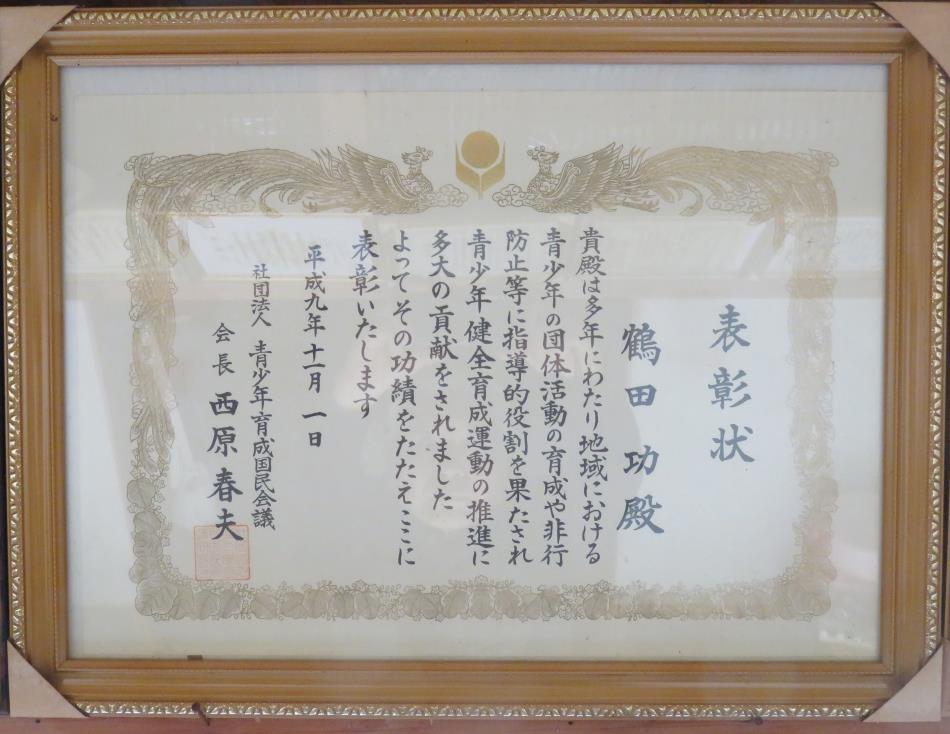 表彰状
鶴田功殿
貴殿は多年にわたり地域における
青少年の団体活動の育成や非行
防止等に指導的役割を果たされ
青少年健全育成運動の推進に
多大の貢献をされました
よってその功績をたたえここに
表彰いたします
平成九年十一月一日
社団法人 青少年育成国民会議
会長 西原春夫